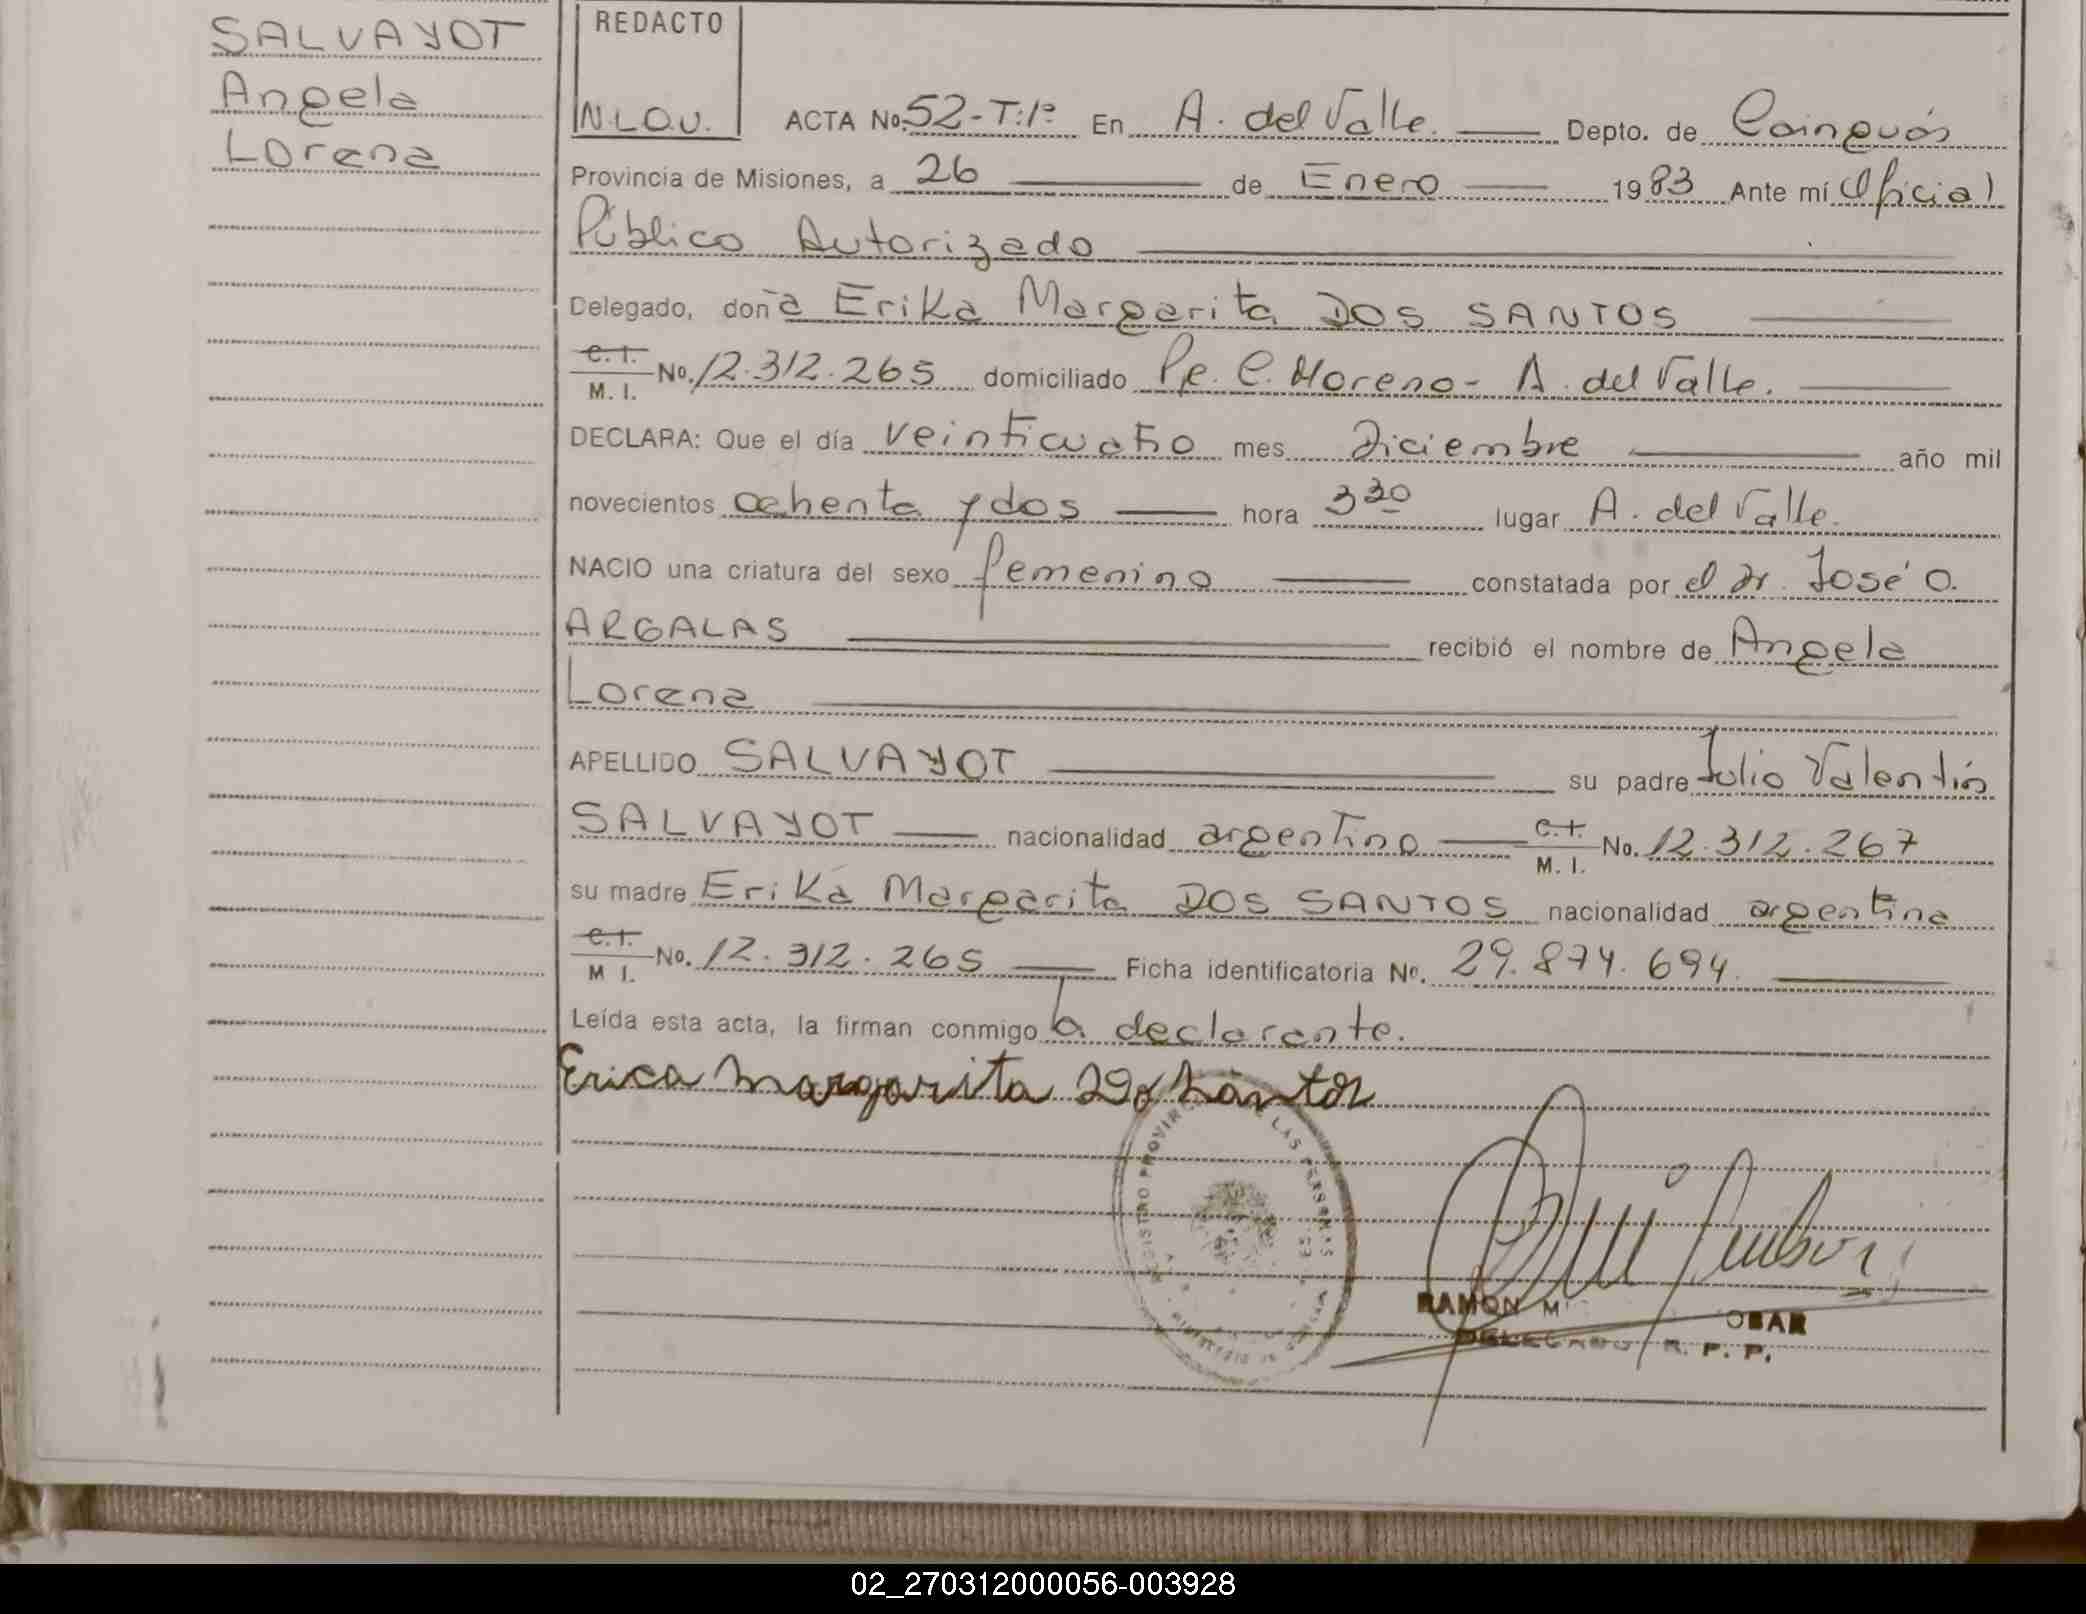 SALVAYOT
Angela
Lorena
REDACTO
N.L.O.V.
ACTA No. 52-T:1º En A. del Valle. Depto. de Cainguás
Provincia de Misiones, a 26 de Enero 1983 Ante mí Oficial
Público Autorizado
Delegado, doña Erika Margarita DOS SANTOS
C.I. M. I. No. 12.312.265 domiciliado Pje. C. Moreno- A. del Valle.
DECLARA: Que el día veinticuatro mes Diciembre año mil
novecientos ochenta y dos hora 3 30 lugar A. del Valle.
NACIO una criatura del sexo femenino constatada por el Dr. José O.
ARGALAS recibió el nombre de Angela
Lorena
APELLIDO SALVAYOT su padre Julio Valentín
SALVAYOT nacionalidad argentino C.I. M. I. No. 12.312.267
su madre Erika Margarita DOS SANTOS nacionalidad argentina
C.I. M I. No. 12.312.265 Ficha identificatoria Nº. 29.874.694.
Leída esta acta, la firman conmigo la declarante.
Erica Margarita Dos Santos
REGISTRO LAS PERSONAS
RAMON M OBAR
DELEGADO R. P. P.
02_270312000056-003928